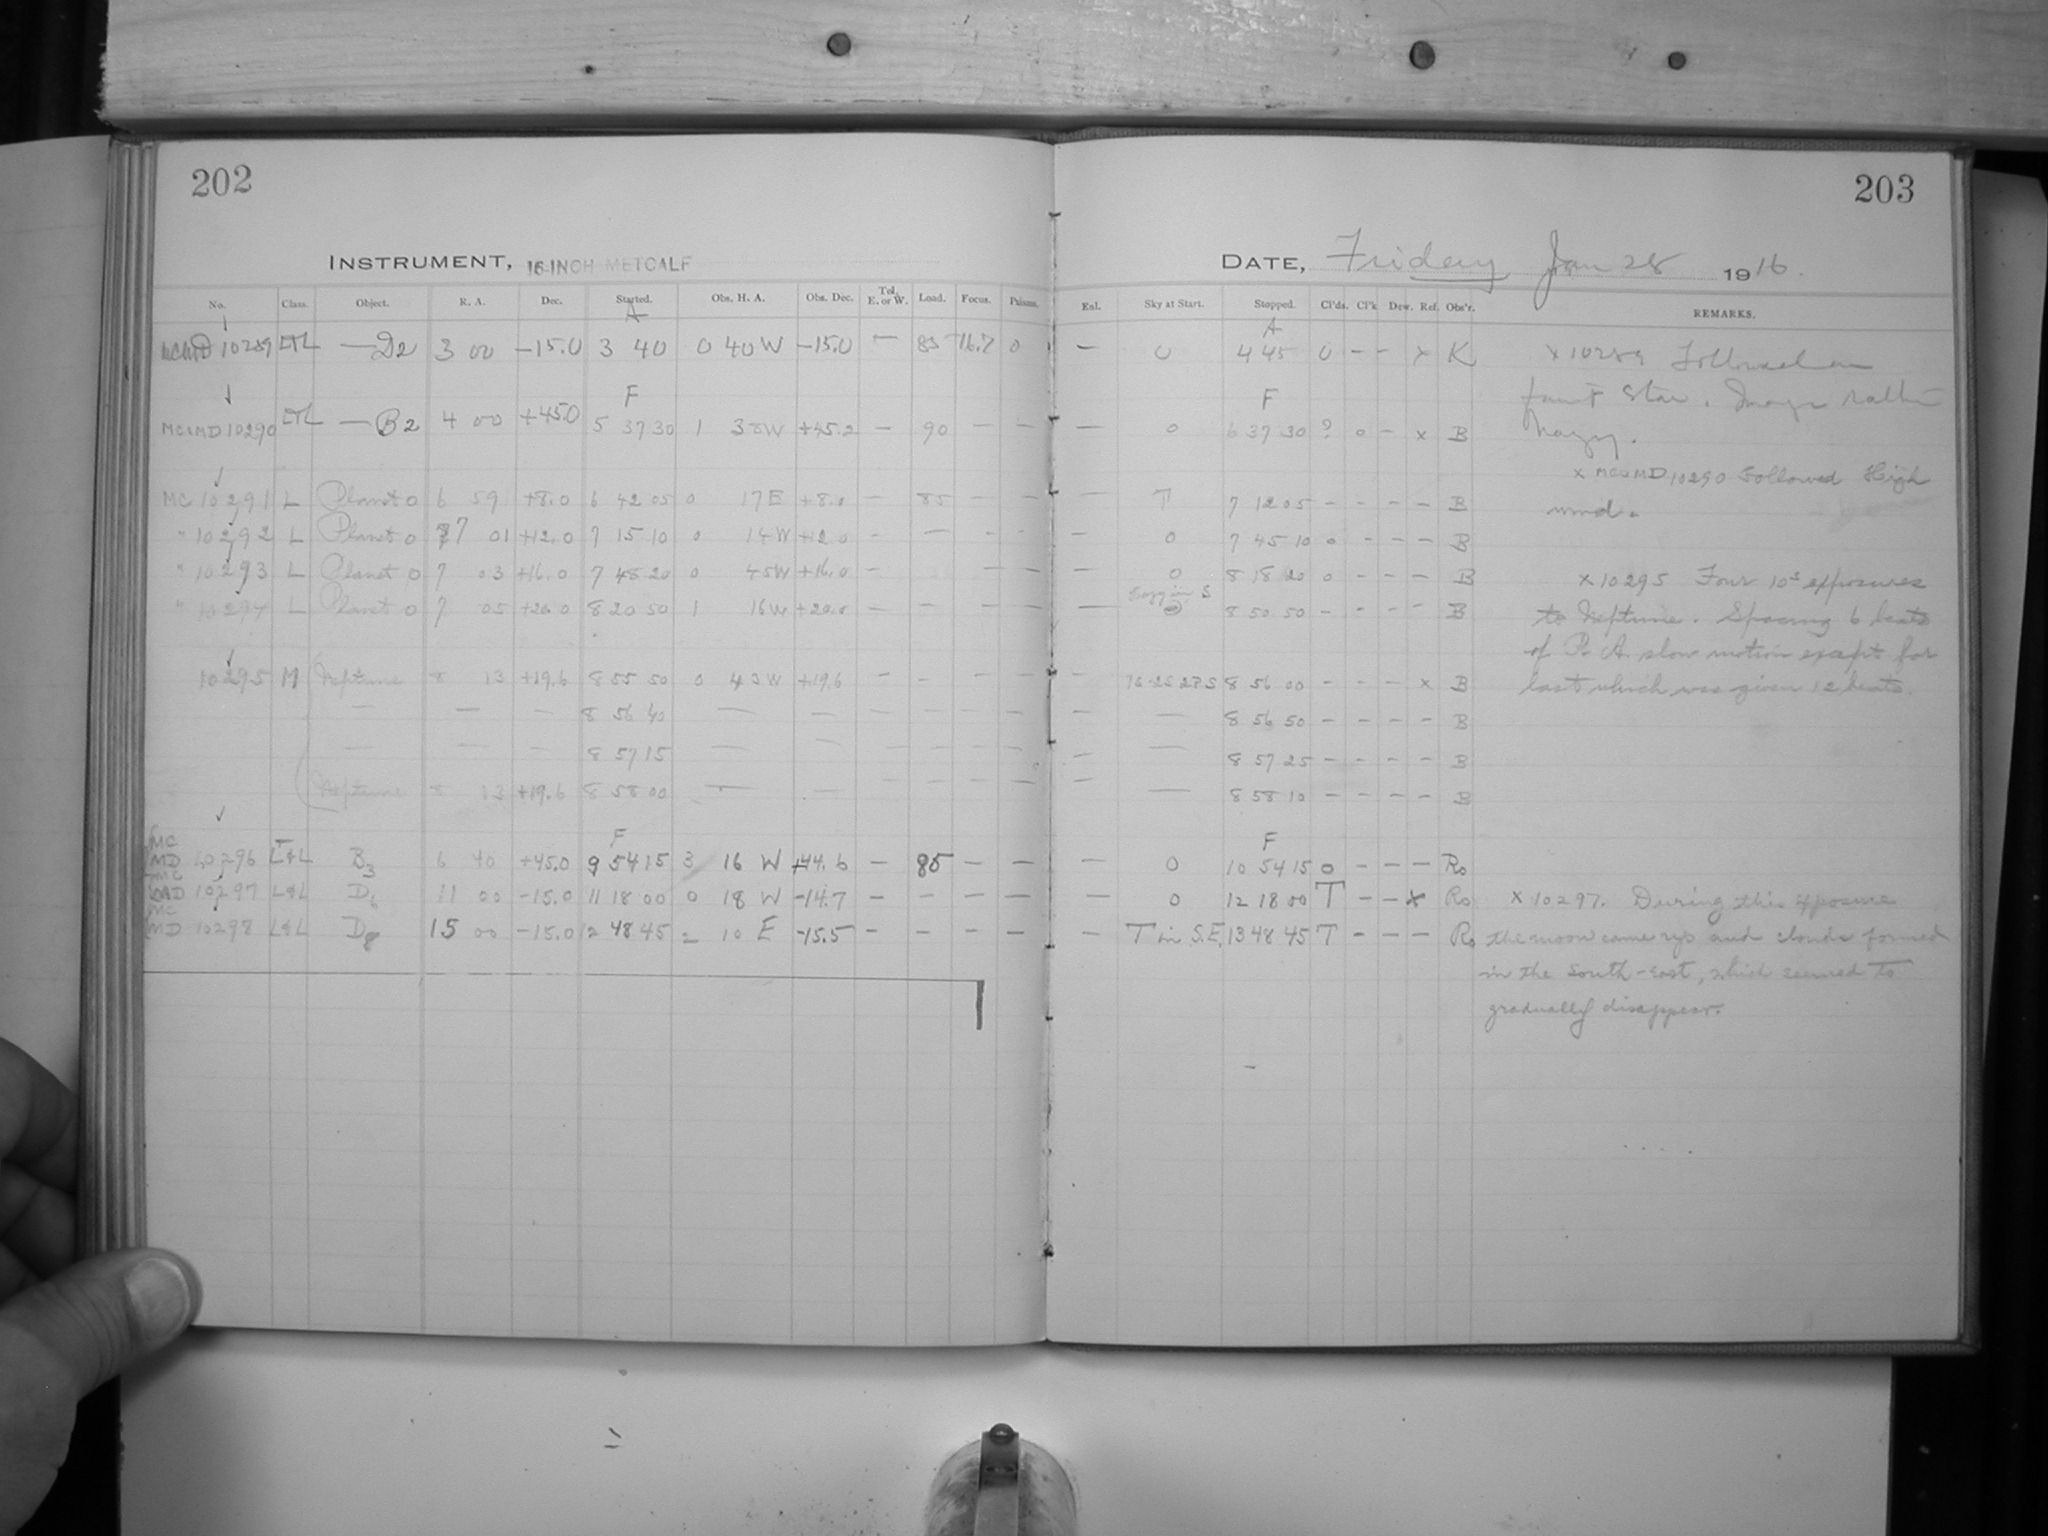 202
203
INSTRUMENT, 16-INCH METCALF
DATE, Friday Jan 28 1916.
No. Class. Object. R. A. Dec. Started. Obs. H. A. Obs. Dec. Tel. E. or W. Load. Focus. Prisms.
Enl. Sky at Start. Stopped. Cl'ds. Cl'k Dew. Ref. Obs'r. REMARKS.
A A
MC MD 10289 L — D2 3 00 -15.0 3 40 0 40 W -15.0 — 85 16.7 0 — 0 4 45 0 - - x K
x 10289 Followed on
faint star. Image rather
hazy.
F F
MC&MD 10290 — B2 4 00 +45.0 5 37 30 1 38 W +45.2 — 90 - - — 0 6 37 30 ? 0 - x B
x MC&MD 10290 Followed High
wind.
MC 10291 L Planet 0 6 59 +8.0 6 42 05 0 17 E +8.0 — 85 - - — T 7 12 05 - - - - B
" 10292 L Planet 0 7 01 +12.0 7 15 10 0 14 W +12.0 - — - - — 0 7 45 10 0 - - - B
" 10293 L Planet 0 7 03 +16.0 7 48 20 0 45 W +16.0 - — - — 0 8 18 20 0 - - - B
" 10294 L Planet 0 7 05 +20.0 8 20 50 1 16 W +20.0 - - - - — S 8 50 50 - - - - B
10295 M Neptune 8 13 +19.6 8 55 50 0 43 W +19.6 - - - - — 8 56 00 - - - x B
— — — 8 56 40 — — — - - - — — 8 56 50 - - - - B
— — — 8 57 15 — — — - - - — — 8 57 25 - - - - B
Neptune 8 13 +19.6 8 58 00 — — - - - - — — 8 58 10 - - - - B
x 10295 Four 10s exposures
to Neptune. Spacing 6 beats
of R. A. slow motion except for
last which was given 12 beats.
F F
MC MD 10296 L&L B3 6 40 +45.0 9 54 15 3 16 W +44.6 — 85 — — — 0 10 54 15 0 - - - Ro
MC MD 10297 L&L D6 11 00 -15.0 11 18 00 0 18 W -14.7 - - - - — 0 12 18 00 T - - x Ro
MC MD 10298 L&L D8 15 00 -15.0 12 48 45 2 10 E -15.5 - - - - — T in S.E. 13 48 45 T - - - Ro
x 10297. During this exposure
the moon came up and clouds formed
in the south-east, which seemed to
gradually disappear.